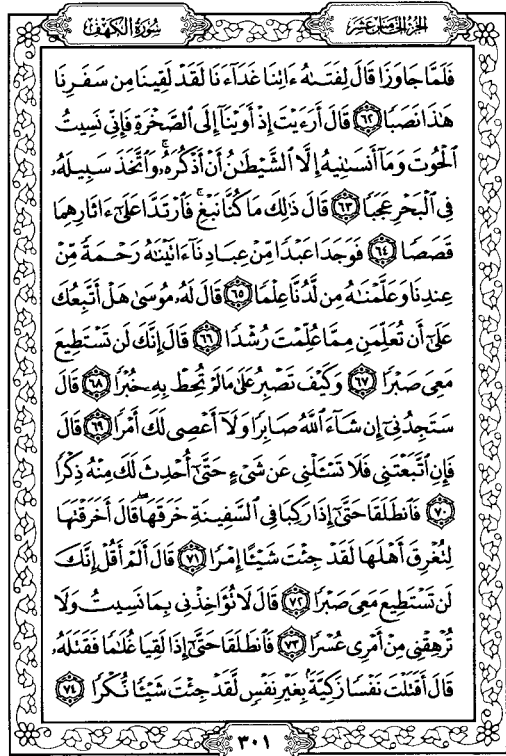 سُورَةُ الكَهْفِ الجُزْءُ الخَامِسَ عَشَرَ
فَلَمَّا جَاوَزَا قَالَ لِفَتَىٰهُ ءَاتِنَا غَدَآءَنَا لَقَدْ لَقِينَا مِن سَفَرِنَا
هَٰذَا نَصَبًا ٦٢ قَالَ أَرَءَيْتَ إِذْ أَوَيْنَآ إِلَى ٱلصَّخْرَةِ فَإِنِّي نَسِيتُ
ٱلْحُوتَ وَمَآ أَنسَىٰنِيهُ إِلَّا ٱلشَّيْطَٰنُ أَنْ أَذْكُرَهُۥۚ وَٱتَّخَذَ سَبِيلَهُۥ
فِي ٱلْبَحْرِ عَجَبًا ٦٣ قَالَ ذَٰلِكَ مَا كُنَّا نَبْغِۚ فَٱرْتَدَّا عَلَىٰٓ ءَاثَارِهِمَا
قَصَصًا ٦٤ فَوَجَدَا عَبْدًا مِّنْ عِبَادِنَآ ءَاتَيْنَٰهُ رَحْمَةً مِّنْ
عِندِنَا وَعَلَّمْنَٰهُ مِن لَّدُنَّا عِلْمًا ٦٥ قَالَ لَهُۥ مُوسَىٰ هَلْ أَتَّبِعُكَ
عَلَىٰٓ أَن تُعَلِّمَنِ مِمَّا عُلِّمْتَ رُشْدًا ٦٦ قَالَ إِنَّكَ لَن تَسْتَطِيعَ
مَعِيَ صَبْرًا ٦٧ وَكَيْفَ تَصْبِرُ عَلَىٰ مَا لَمْ تُحِطْ بِهِۦ خُبْرًا ٦٨ قَالَ
سَتَجِدُنِيٓ إِن شَآءَ ٱللَّهُ صَابِرًا وَلَآ أَعْصِي لَكَ أَمْرًا ٦٩ قَالَ
فَإِنِ ٱتَّبَعْتَنِي فَلَا تَسْـَٔلْنِي عَن شَيْءٍ حَتَّىٰٓ أُحْدِثَ لَكَ مِنْهُ ذِكْرًا
٧٠ فَٱنطَلَقَا حَتَّىٰٓ إِذَا رَكِبَا فِي ٱلسَّفِينَةِ خَرَقَهَاۖ قَالَ أَخَرَقْتَهَا
لِتُغْرِقَ أَهْلَهَا لَقَدْ جِئْتَ شَيْـًٔا إِمْرًا ٧١ قَالَ أَلَمْ أَقُلْ إِنَّكَ
لَن تَسْتَطِيعَ مَعِيَ صَبْرًا ٧٢ قَالَ لَا تُؤَاخِذْنِي بِمَا نَسِيتُ وَلَا
تُرْهِقْنِي مِنْ أَمْرِي عُسْرًا ٧٣ فَٱنطَلَقَا حَتَّىٰٓ إِذَا لَقِيَا غُلَٰمًا فَقَتَلَهُۥ
قَالَ أَقَتَلْتَ نَفْسًا زَكِيَّةَۢ بِغَيْرِ نَفْسٍ لَّقَدْ جِئْتَ شَيْـًٔا نُّكْرًا ٧٤
٣٠١